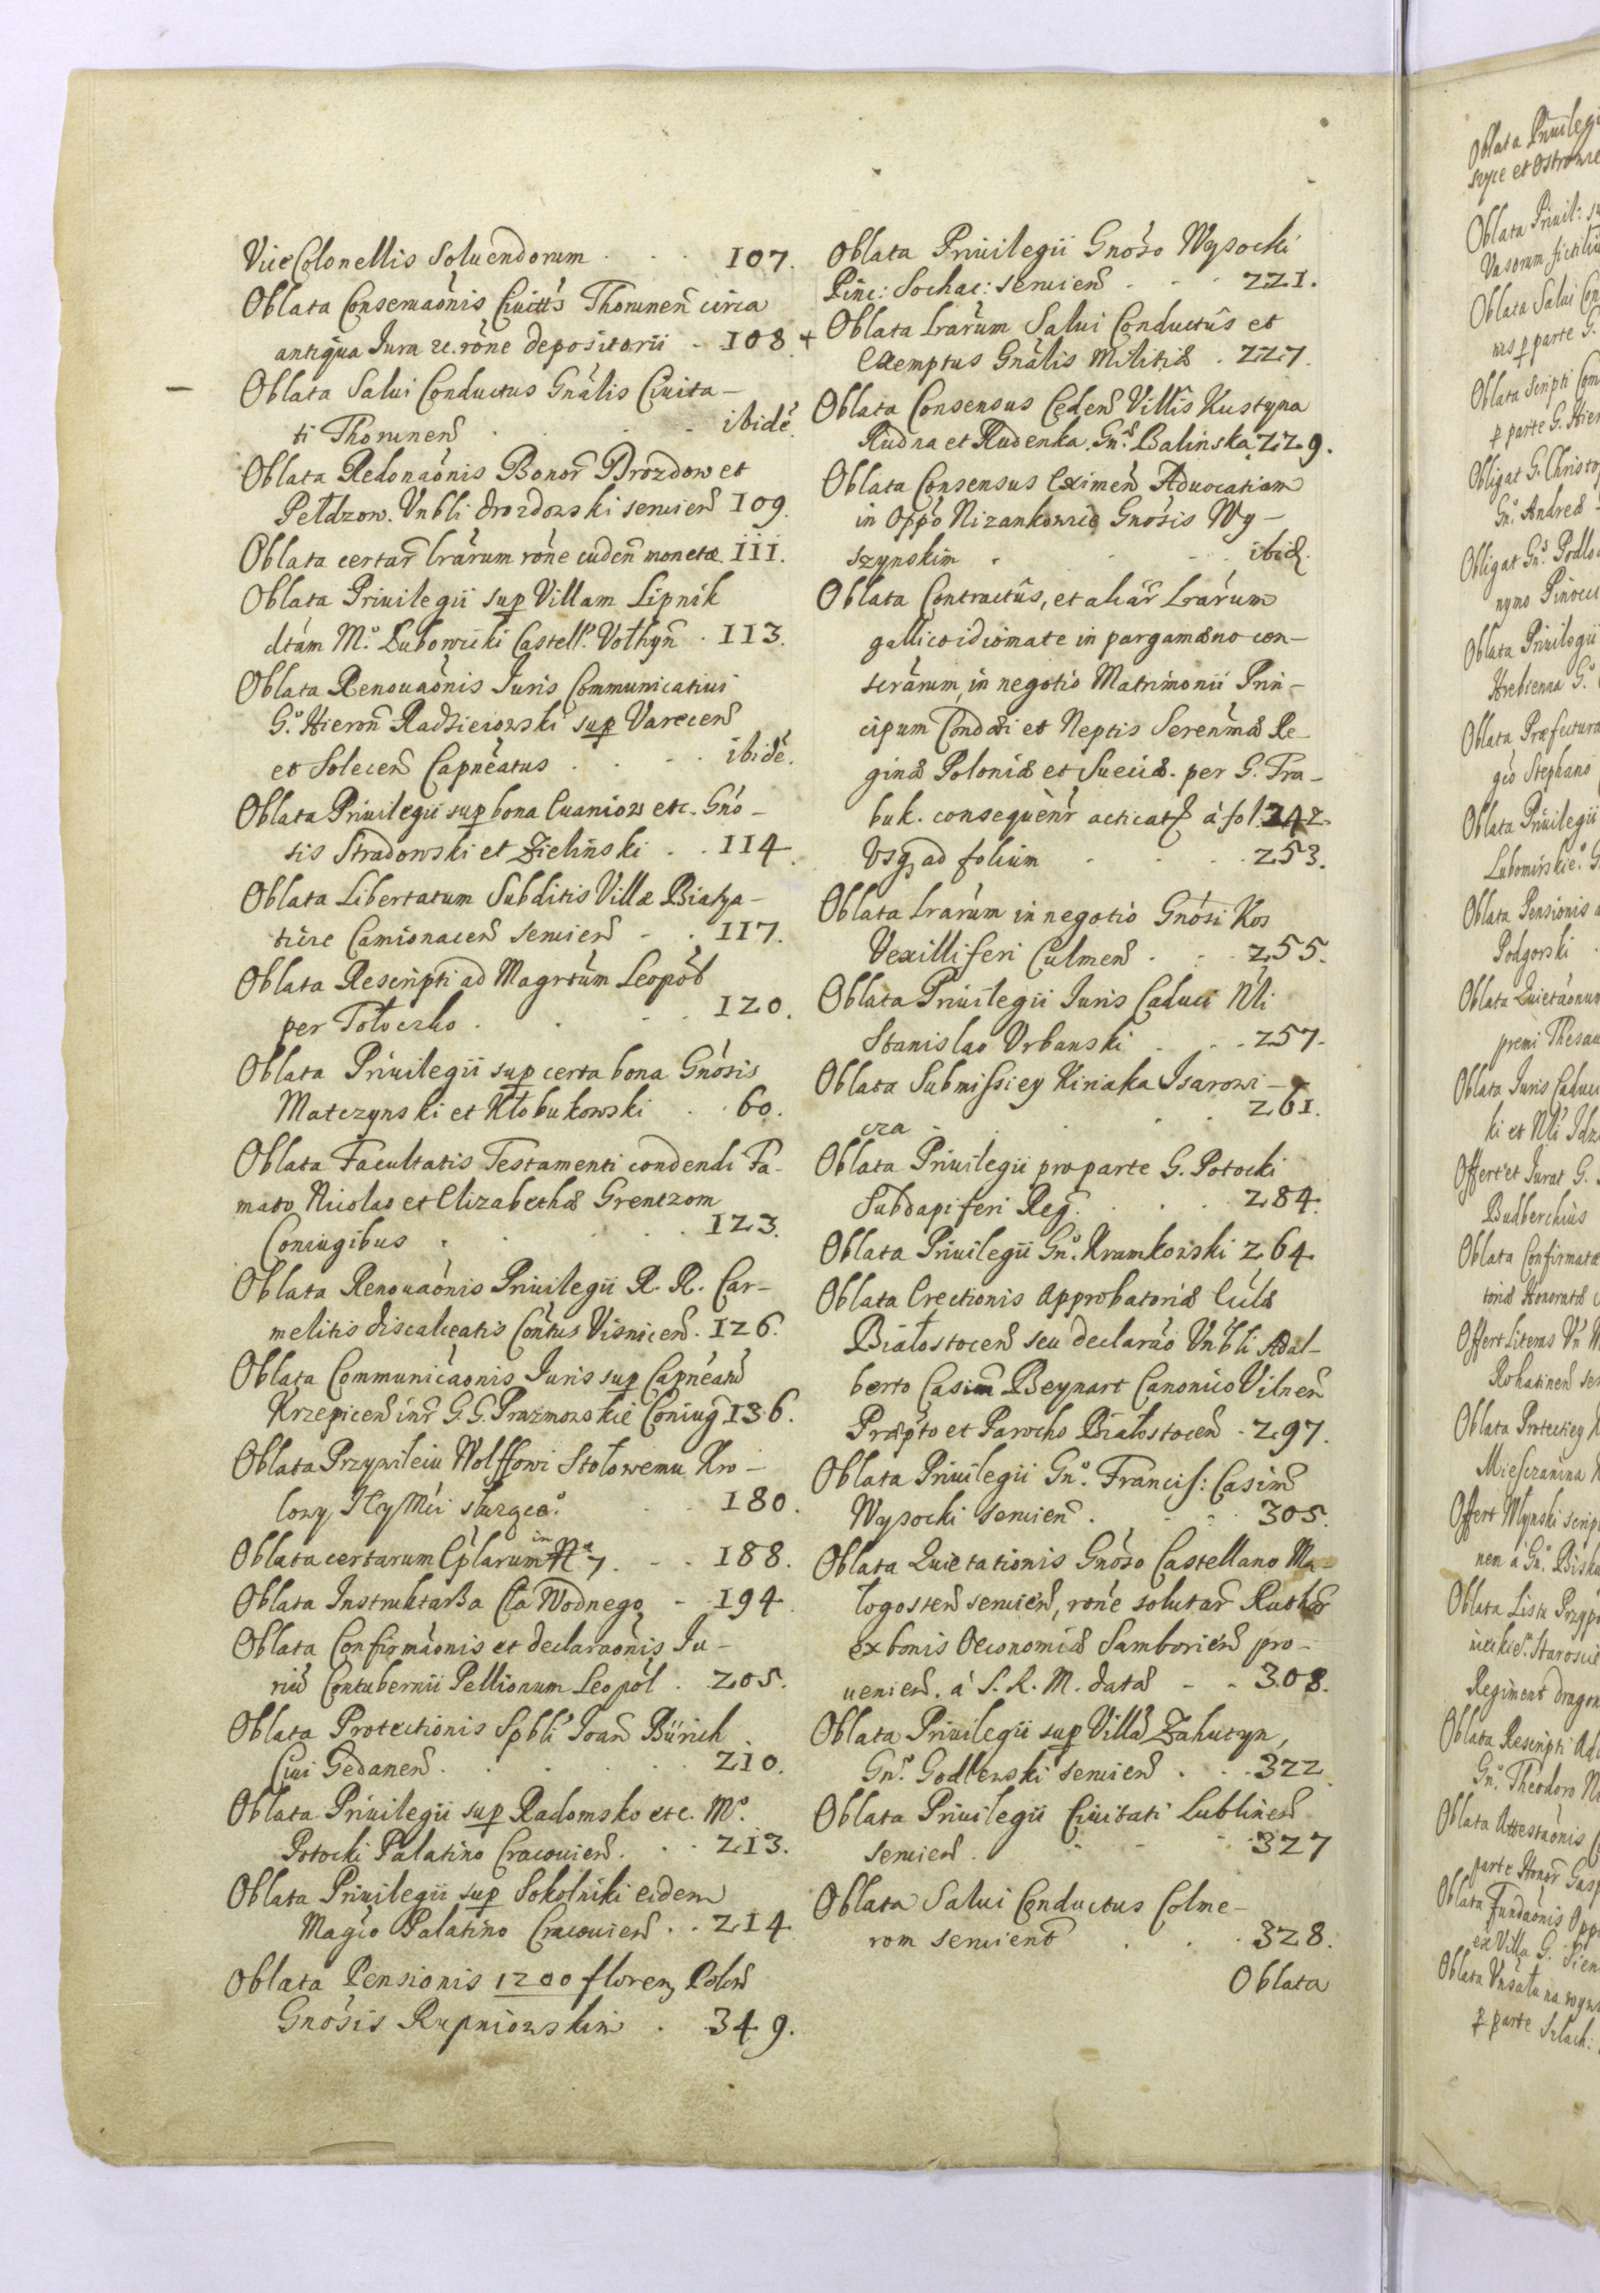 ViceColonellis Soluendorum . . . 107.
Oblata Conseruaōnis Ciuittis Thorunen̄ circa
antiqua Iura re. rōne depositorii . 108.
Oblata Salui Conductus Gnālis Ciuita-
ti Thorunen̄ . . . ibidē.
Oblata Redonaōnis Bonor̄ Drozdow et
Peldzow. Vnbli Drozdowski seruien̄ 109.
Oblata certar̄ lrārum rōne cuden̄ monetæ. 111.
Oblata Priuilegii sup Villam Lipnik
dtām Mo. Lubowicki Castell. Volhyn̄ . 113.
Oblata Renouaōnis Iuris Communicatiui
Go. Hieron̄ Radzieiowski sup Varecen̄
et Solecen̄ Capnēatus . . . ibidē.
Oblata Priuilegii sup bona Cuaniow etc. Gnō-
sis Stradowski et Zielinski . . 114.
Oblata Libertatum Subditis Villæ Białya-
ticze Camionacen̄ seruien̄ . . 117.
Oblata Rescripti ad Magrtūm Leopōl
per Tołoczko . . . 120.
Oblata Priuilegii sup certa bona Gnōsis
Matczynski et Kłobukowski . . 60.
Oblata Facultatis Testamenti condendi Fa-
mato Nicolao et Elizabethæ Grentzom
Coniugibus . . . 123.
Oblata Renouaōnis Priuilegii R. R. Car-
melitis discalceatis Cōntus Visnicen̄. 126.
Oblata Communicāonis Iuris sup Capnēatū
Krzepicen̄ inr̄ G. G. Prazmowskie Coniuḡ 136.
Oblata Przywileiu Wolffowi Stolowemu Kro-
lowy ICyMci sluzące.o . . 180.
Oblata certarum Cplārum in No 7. . . 188.
Oblata Instruktarza Cła Wodnego . 194.
Oblata Confirmāonis et declaraōnis Iu-
riū Contubernii Pellionum Leopōl . 205.
Oblata Protectionis Spbli Ioan̄ Bürich
Ciui Gedanen̄ . . . 210.
Oblata Priuilegii sup Radomsko etc. Mo.
Potocki Palatino Cracouien̄. . . 213.
Oblata Priuilegii sup Sokolniki eidem
Magco Palatino Cracouien̄ . . 214.
Oblata Pensionis 1200 floren Polon̄
Gnōsis Rupniowskim . 349.
Oblata Priuilegii Gnōso Wysocki
Pinc: Sochac: seruien̄ . . . 221.
+ Oblata Lrārum Salui Conductūs et
Exemptus Gnālis Militiæ . 227.
Oblata Consensus Ceden̄ Villis Kustyna
Rudna et Rudenka. Gnæ Balinska. 229.
Oblata Consensus Eximen̄ Aduocatiam
in Oppo Nizankowice Gnōsis Wy-
szynskim . . . ibid.
Oblata Contractūs, et aliar̄ Lrārum
gallico idiomate in pargamæno con-
scrārum, in negotio Matrimonii Prin-
cipum Condæi et Neptis Serenmæ Re-
ginæ Poloniæ et Sueciæ. per G. Tra-
buk. consequēnr acticat à fol. 242.
Vsq ad folium . . . 253.
Oblata Lrārum in negotio Gnōsi Kos
Vexilliferi Culmen̄ . . . 255.
Oblata Priuilegii Iuris Caduci Nli
Stanislao Vrbanski . . . 257.
Oblata Submissiey Kiriaka Isarowi-
cza . . . 261.
Oblata Priuilegii pro parte G. Potocki
Subdapiferi Reg. . . . 284.
Oblata Priuilegii Gno. Kramkowski 264.
Oblata Erectionis Approbatoriæ Ecclæ
Białostocen̄ seu declarāo Vnbli Adal-
berto Casim̄ Beynart Canonico Vilnen̄
Præpto et Parocho Białostocen̄ . 297.
Oblata Priuilegii Gno. Francis: Casim̄
Wysocki seruien̄ . . . 305.
Oblata Quietationis Gnōso Castellano Ma-
łogosten̄ seruien̄, rōne solutar̄
ex bonis Oeconomiæ Samborien̄ pro-
uenien̄. à S. R. M. datæ . . 308.
Oblata Priuilegii sup Villā Zahutyn,
Gno. Godlewski seruien̄ . . . 322.
Oblata Priuilegii Ciuitati Lublinen̄
seruien̄ . . . 327
Oblata Salui Conductus Colme-
rom seruient̄ . . . 328.
Oblata
Oblata Priuilegi
Oblata Priuil: su
Vasorum fictiliu
Oblata Salui Con
Oblata Scripti Com
p parte G. Hier
Obligat G. Christo
Gno. Andreæ
Obligat Gno. Podlo
nymo Pinocci
Oblata Priuilegii
Oblata Præfectura
gco Stephano
Oblata Priuilegii
Lubomirskie.o G
Oblata Pensionis a
Podgorski
Oblata Quietaōnum
premi Thesau
Oblata Iuris Caduci
ki et Nli Idz
Offert et Iurat G.
Budberchius
Oblata Confirmatæ
toriæ Honoratæ
Offert Literas
Rohatinen̄ ser
Oblata Protectiey
Miesczanina
Offert Młynski scrip
nem à Gno. Bisku
Oblata Listu Przypo
Starosci
Regiment dragon
Oblata Rescripti Ad
Gno. Theodoro
Oblata Attestāonis
parte Honor̄ Gasp
Oblata Fundaōnis Opp
ex Villa G. Sien
Oblata
p parte Szlach: